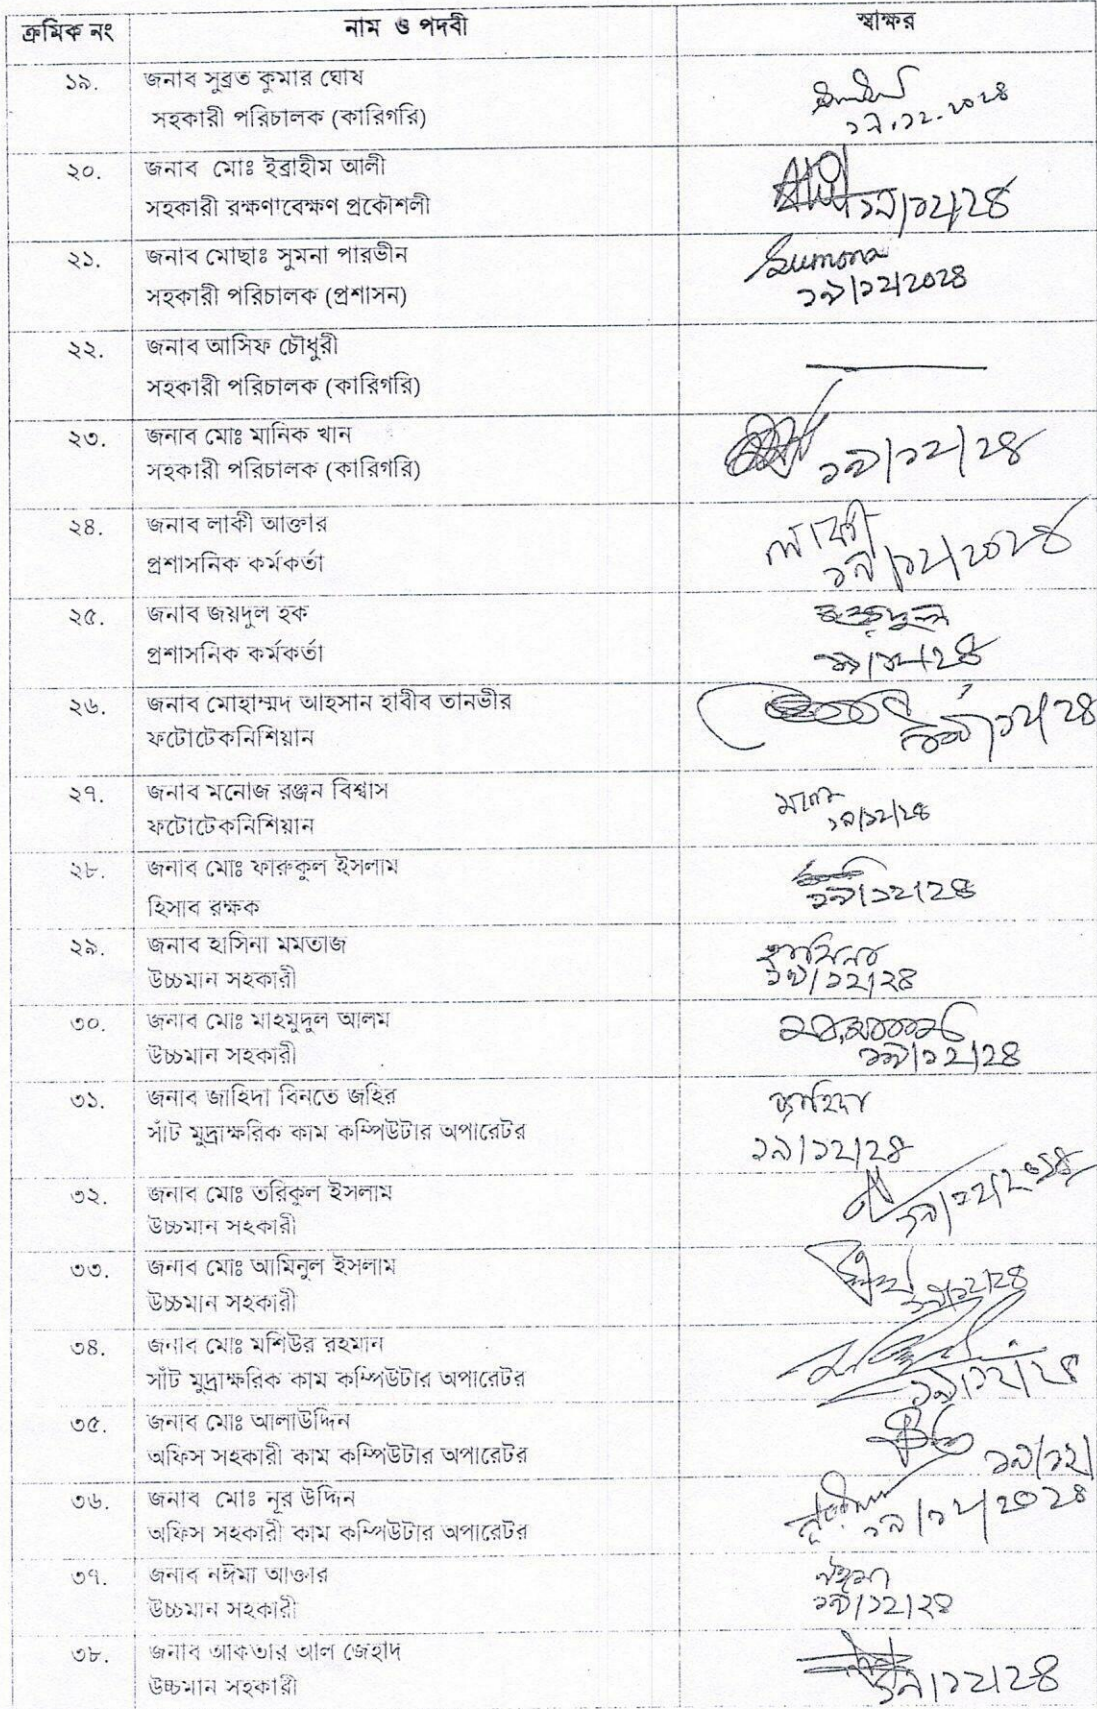 ক্রমিক নং নাম ও পদবী স্বাক্ষর
১৯. জনাব সুব্রত কুমার ঘোষ
সহকারী পরিচালক (কারিগরি)
১৯.১২.২০২৪
২০. জনাব মোঃ ইব্রাহীম আলী
সহকারী রক্ষণাবেক্ষণ প্রকৌশলী
১৯/১২/২৪
২১. জনাব মোছাঃ সুমনা পারভীন
Sumona
সহকারী পরিচালক (প্রশাসন)
১৯/১২/২০২৪
২২. জনাব আসিফ চৌধুরী
সহকারী পরিচালক (কারিগরি)
২৩. জনাব মোঃ মানিক খান
সহকারী পরিচালক (কারিগরি)
১৯/১২/২৪
২৪. জনাব লাকী আক্তার
লাকী
প্রশাসনিক কর্মকর্তা
১৯/১২/২০২৪
২৫. জনাব জয়দুল হক
প্রশাসনিক কর্মকর্তা
১৯/১২/২৪
২৬. জনাব মোহাম্মদ আহসান হাবীব তানভীর
ফটোটেকনিশিয়ান
১৯/১২/২৪
২৭. জনাব মনোজ রঞ্জন বিশ্বাস
ফটোটেকনিশিয়ান
১৯/১২/২৪
২৮. জনাব মোঃ ফারুকুল ইসলাম
হিসাব রক্ষক
১৯/১২/২৪
২৯. জনাব হাসিনা মমতাজ
হাসিনা
উচ্চমান সহকারী
১৯/১২/২৪
৩০. জনাব মোঃ মাহমুদুল আলম
উচ্চমান সহকারী
১৯/১২/২৪
৩১. জনাব জাহিদা বিনতে জহির
জাহিদা
সাঁট মুদ্রাক্ষরিক কাম কম্পিউটার অপারেটর
১৯/১২/২৪
৩২. জনাব মোঃ তরিকুল ইসলাম
উচ্চমান সহকারী
১৯/১২/২০২৪
৩৩. জনাব মোঃ আমিনুল ইসলাম
উচ্চমান সহকারী
১৯/১২/২৪
৩৪. জনাব মোঃ মশিউর রহমান
সাঁট মুদ্রাক্ষরিক কাম কম্পিউটার অপারেটর
১৯/১২/২৪
৩৫. জনাব মোঃ আলাউদ্দিন
অফিস সহকারী কাম কম্পিউটার অপারেটর
১৯/১২/
৩৬. জনাব মোঃ নূর উদ্দিন
অফিস সহকারী কাম কম্পিউটার অপারেটর
১৯/১২/২০২৪
৩৭. জনাব নঈমা আক্তার
নঈমা
উচ্চমান সহকারী
১৯/১২/২৪
৩৮. জনাব আকতার আল জেহাদ
উচ্চমান সহকারী
১৯/১২/২৪